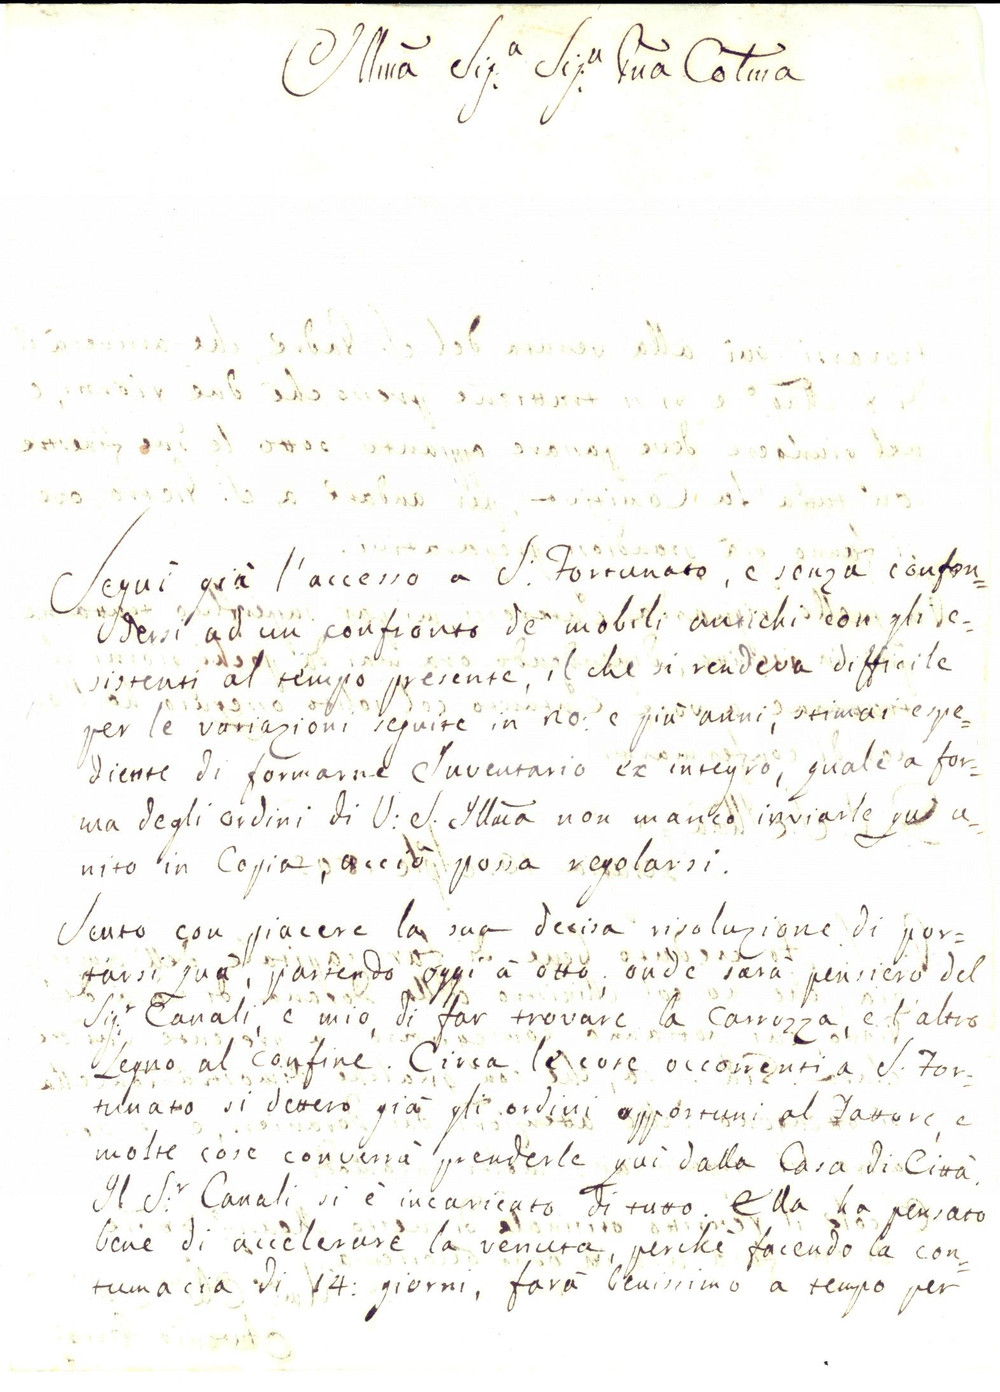 Illmã Sig.ª Sig.ª Pña Colma
Seguì già l'accesso a S. Fortunato, e senza confon=
dersi ad un confronto de' mobili antichi con gli e=
sistenti al tempo presente, il che si rendeva difficile
per le variazioni seguite in 20: e più anni, stimai espe=
diente di formarne Inventario ex integro, quale a for=
ma degli ordini di V: S. Illmã non manco inviarle qui u=
nito in Copia, acciò possa regolarsi.
Sento con piacere la sua decisa risoluzione di por=
tarsi quà, partendo oggi à otto; onde sarà pensiero del
Sig.r Canali, e mio, di far trovare la Carrozza, e l'altro
Legno al confine. Circa le cose occorrenti a S. For=
tunato si dettero già gli ordini opportuni al Fattore, e
molte cose converrà prenderle qui dalla Casa di Città.
Il S.r Canali si è incaricato di tutto. Ella ha pensato
bene di accelerare la venuta, perchè facendo la con=
tumacia di 14: giorni, farà benissimo a tempo per